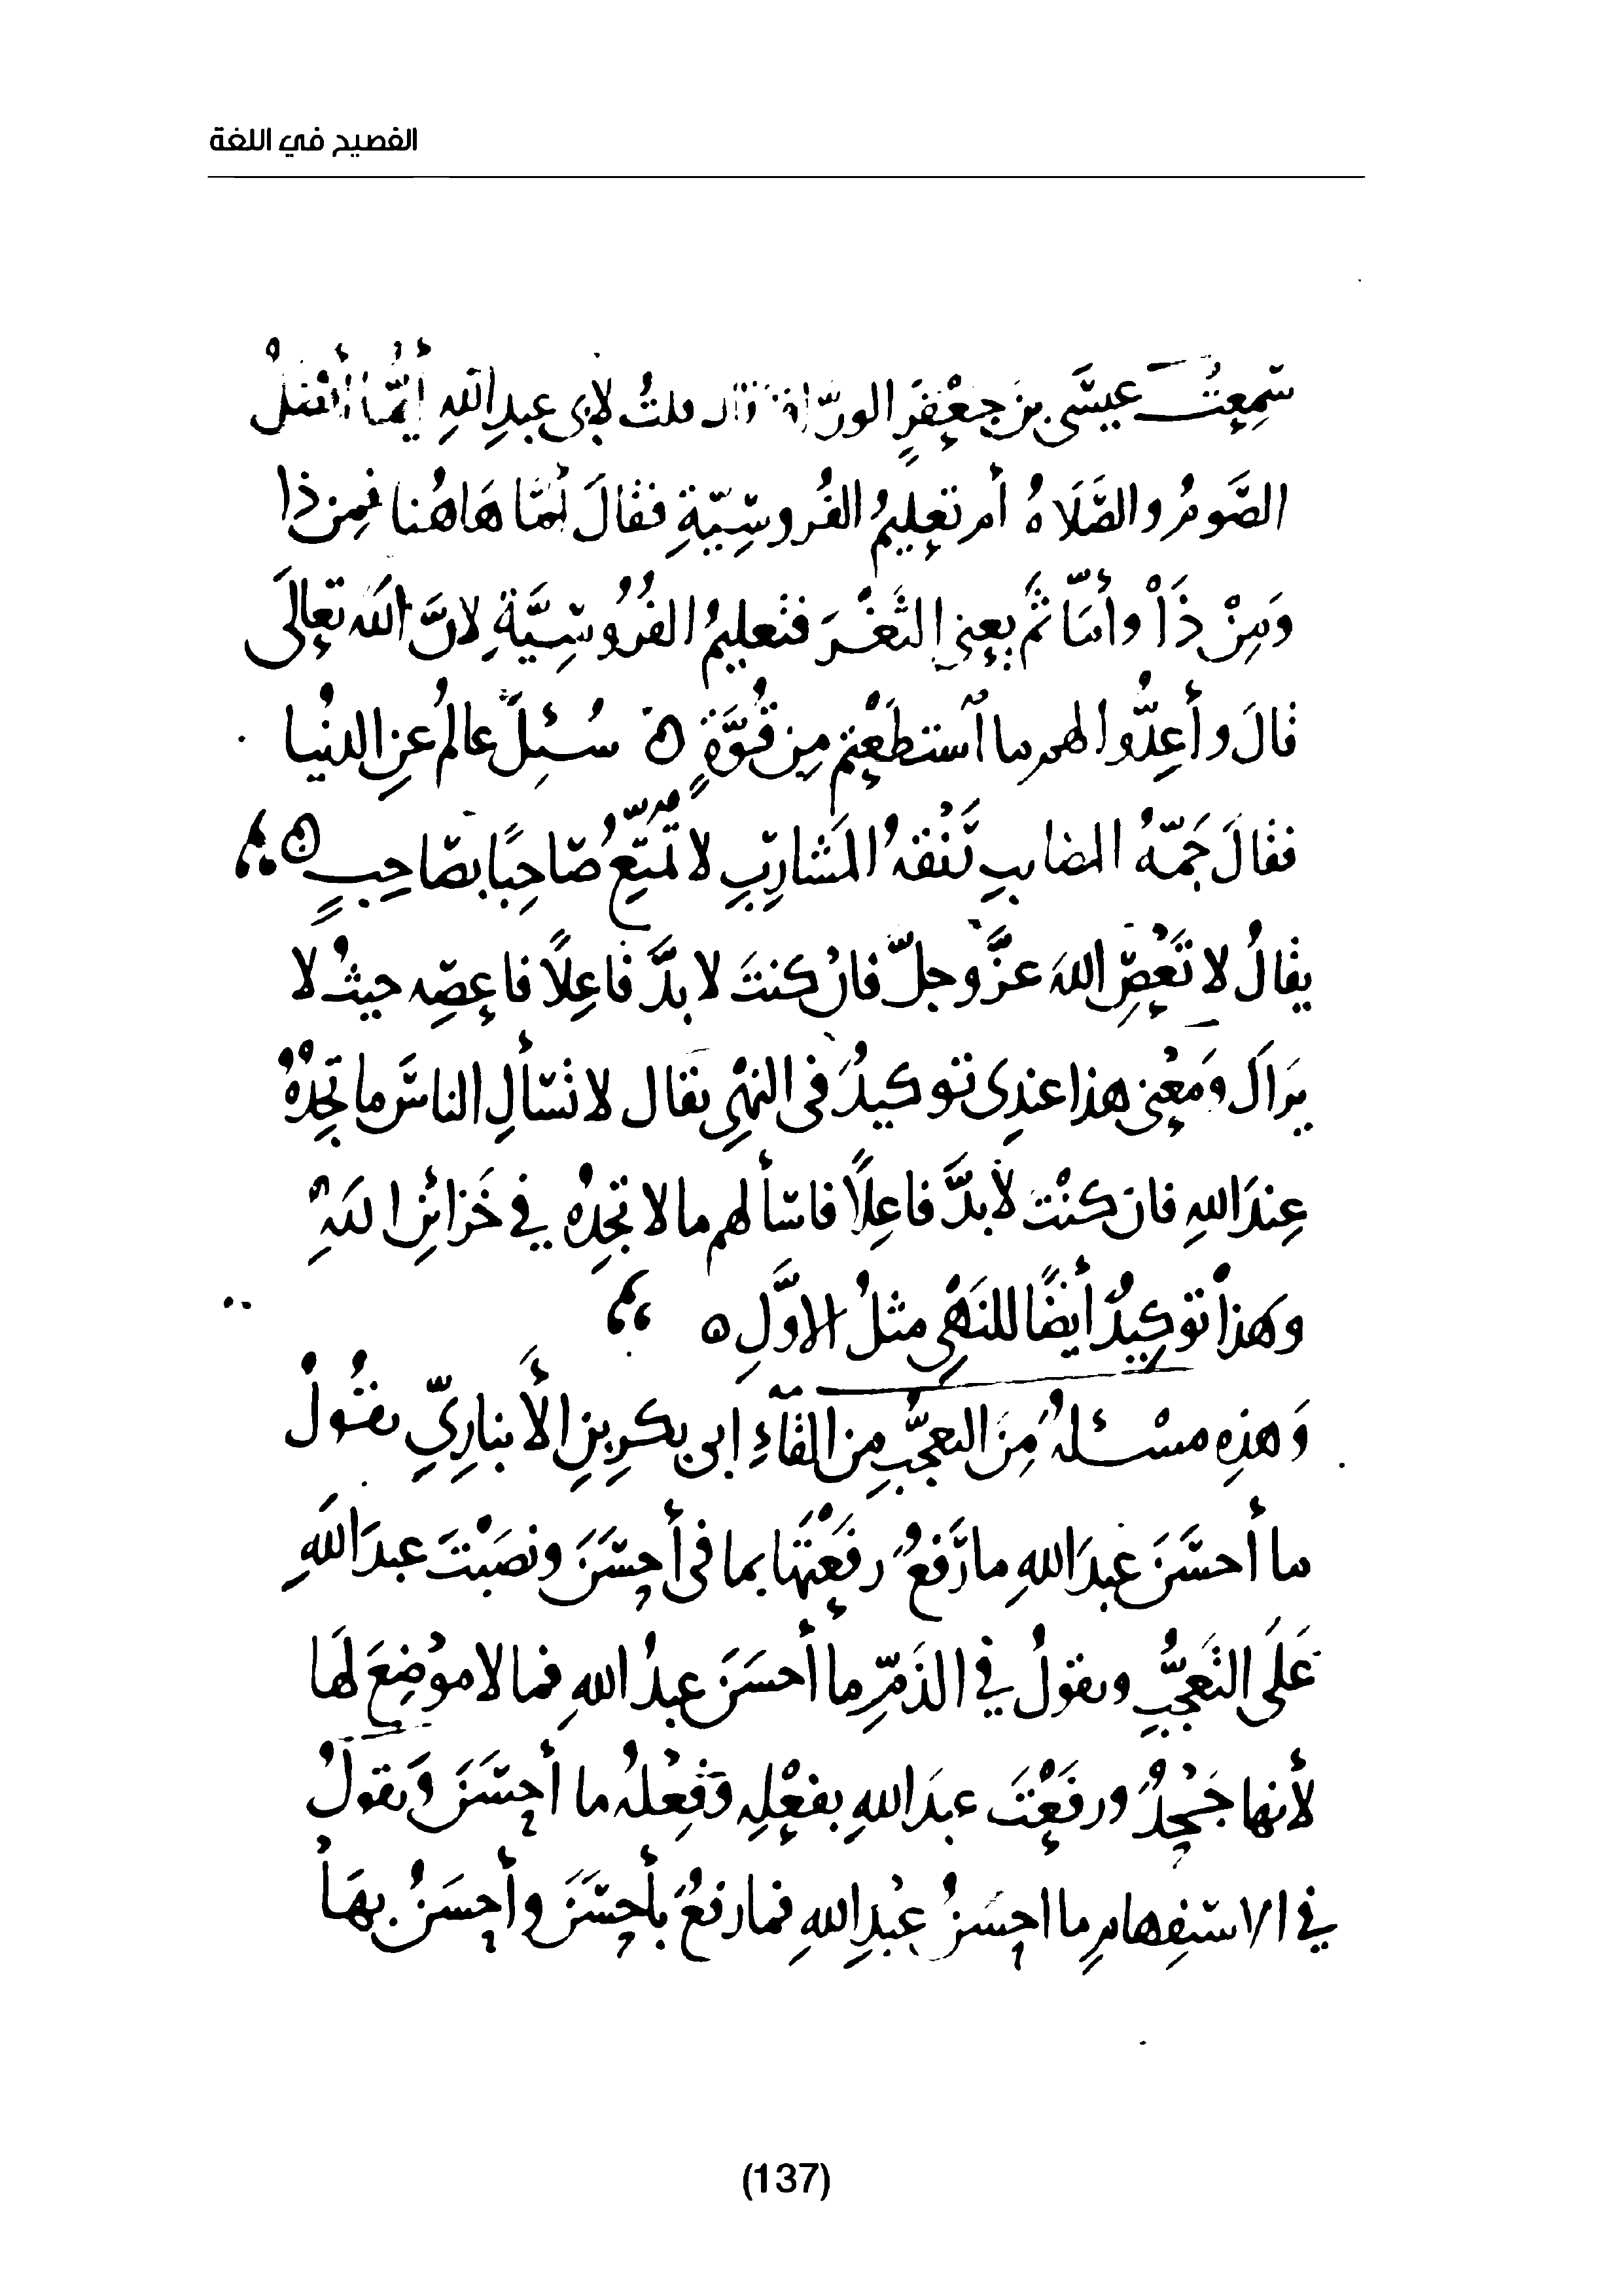 الفصيح في اللغة
سَمِعتُ عيسَى بنَ جعْفَرٍ الورّاق قال قلتُ لابى عبدِ اللهِ أيُّما أفضلُ
الصَّومُ والصَّلَاةُ أم تعلِيمُ الفُروسِيّةِ فقالَ أمّا هَاهُنا فمِن ذا
وَمِنْ ذَا وأمّا ثَمَّ يعنِى الثَّغْرَ فتعليمُ الفُرُوسِيَّةِ لانَّ اللهَ تعالَى
قالَ وأعِدُّوا لهم ما ٱستطَعْتم مِن قُوَّةٍ ه سُئِلَ عالمٌ عنِ الدنْيا
فقالَ جَمّةُ المصايبِ رَنْقةُ المَشارِبِ لا تُمَتِّعُ صَاحِبًا بصَاحِبٍ ه
يقالُ لا تَعْصِ اللهَ عزَّ وجلّ فان كنتَ لا بدَّ فاعِلاً فاعصِه حيثُ لا
يَراكَ ومَعْنى هذا عندِى توكيدٌ فى النهْىِ يقال لا تسْألِ الناسَ ما تجِدُهُ
عِندَ اللهِ فان كنْتَ لا بدَّ فاعِلاً فاسْألهم ما لا تجِدُه في خَزائنِ اللهِ
وهذا توكِيدٌ أيضًا للنَهْىِ مثلُ الاوَّلِ ه
وَهذِهِ مسْئلةٌ مِنَ التعجُّبِ مِن القَآءِ ابى بكرِ بنِ الأنبارِىِّ تقُولُ
ما أحسَنَ عبدَ اللهِ ما رَفعٌ رفَعْتَها بما فى أحسَنَ ونصَبْتَ عبدَ اللهِ
عَلَى التَعجُّبِ وتقولُ في الذَمِّ ما أحسَنَ عبدُ اللهِ فما لا موْضِعَ لَها
لأنها جَحْدٌ ورفَعْتَ عبدَ اللهِ بفعْلِه وفِعْلُه ما أحسَنَ وَتقولُ
في الاستفهامِ ما احسَنُ عبْدِ اللهِ فما رفعٌ بأحسَنَ وأحسَنُ بهَا
(137)